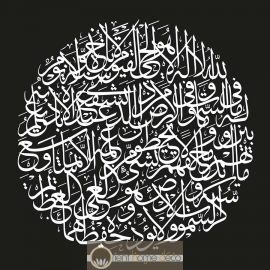 الله لا إله إلا هو الحي القيوم لا تأخذه سنة ولا نوم
له ما في السموات وما في الأرض من ذا الذي يشفع عنده إلا بإذنه
يعلم ما بين أيديهم وما خلفهم ولا يحيطون بشيء من علمه إلا بما شاء
وسع كرسيه السموات والأرض ولا يؤوده حفظهما وهو العلي العظيم
orient home deco